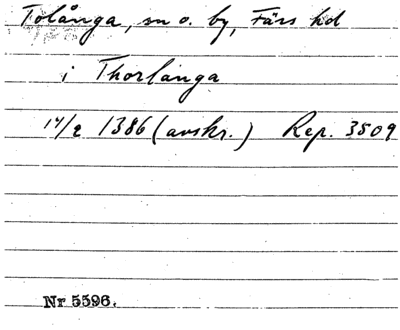 Tolånga, sn o. by, Färs hd
i Thorlanga
14/2 1386 (avskr.) Rep. 3509
Nr 5596.